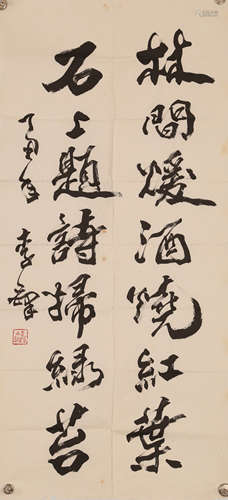 林間煖酒燒紅葉
石上題詩掃綠苔
丁丑年 李鐸